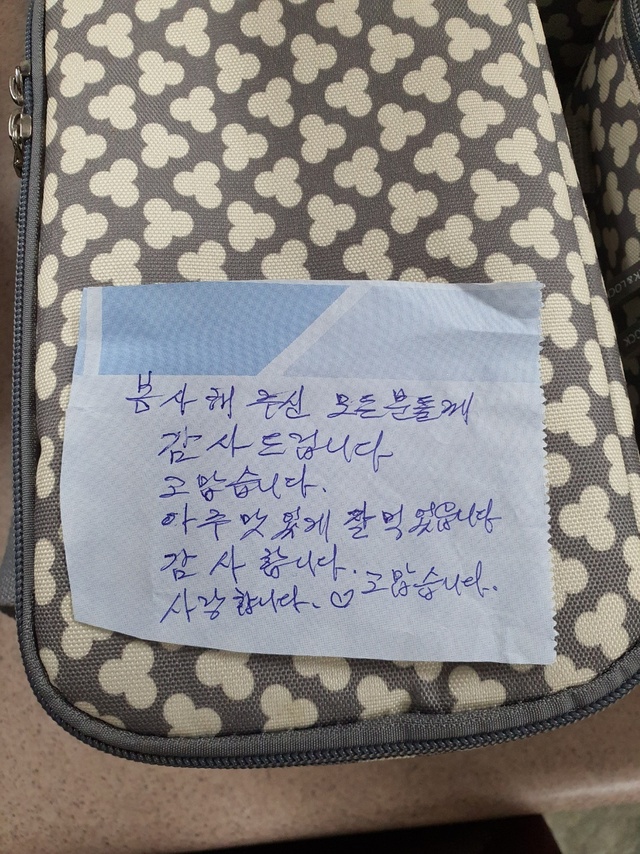 봄사해 주신 모든분들게
감사드립니다
고맙습니다.
아주 맛있게 잘 먹었읍니다
감사합니다.
사랑합니다. ♡ 고맙습니다.
LOCK